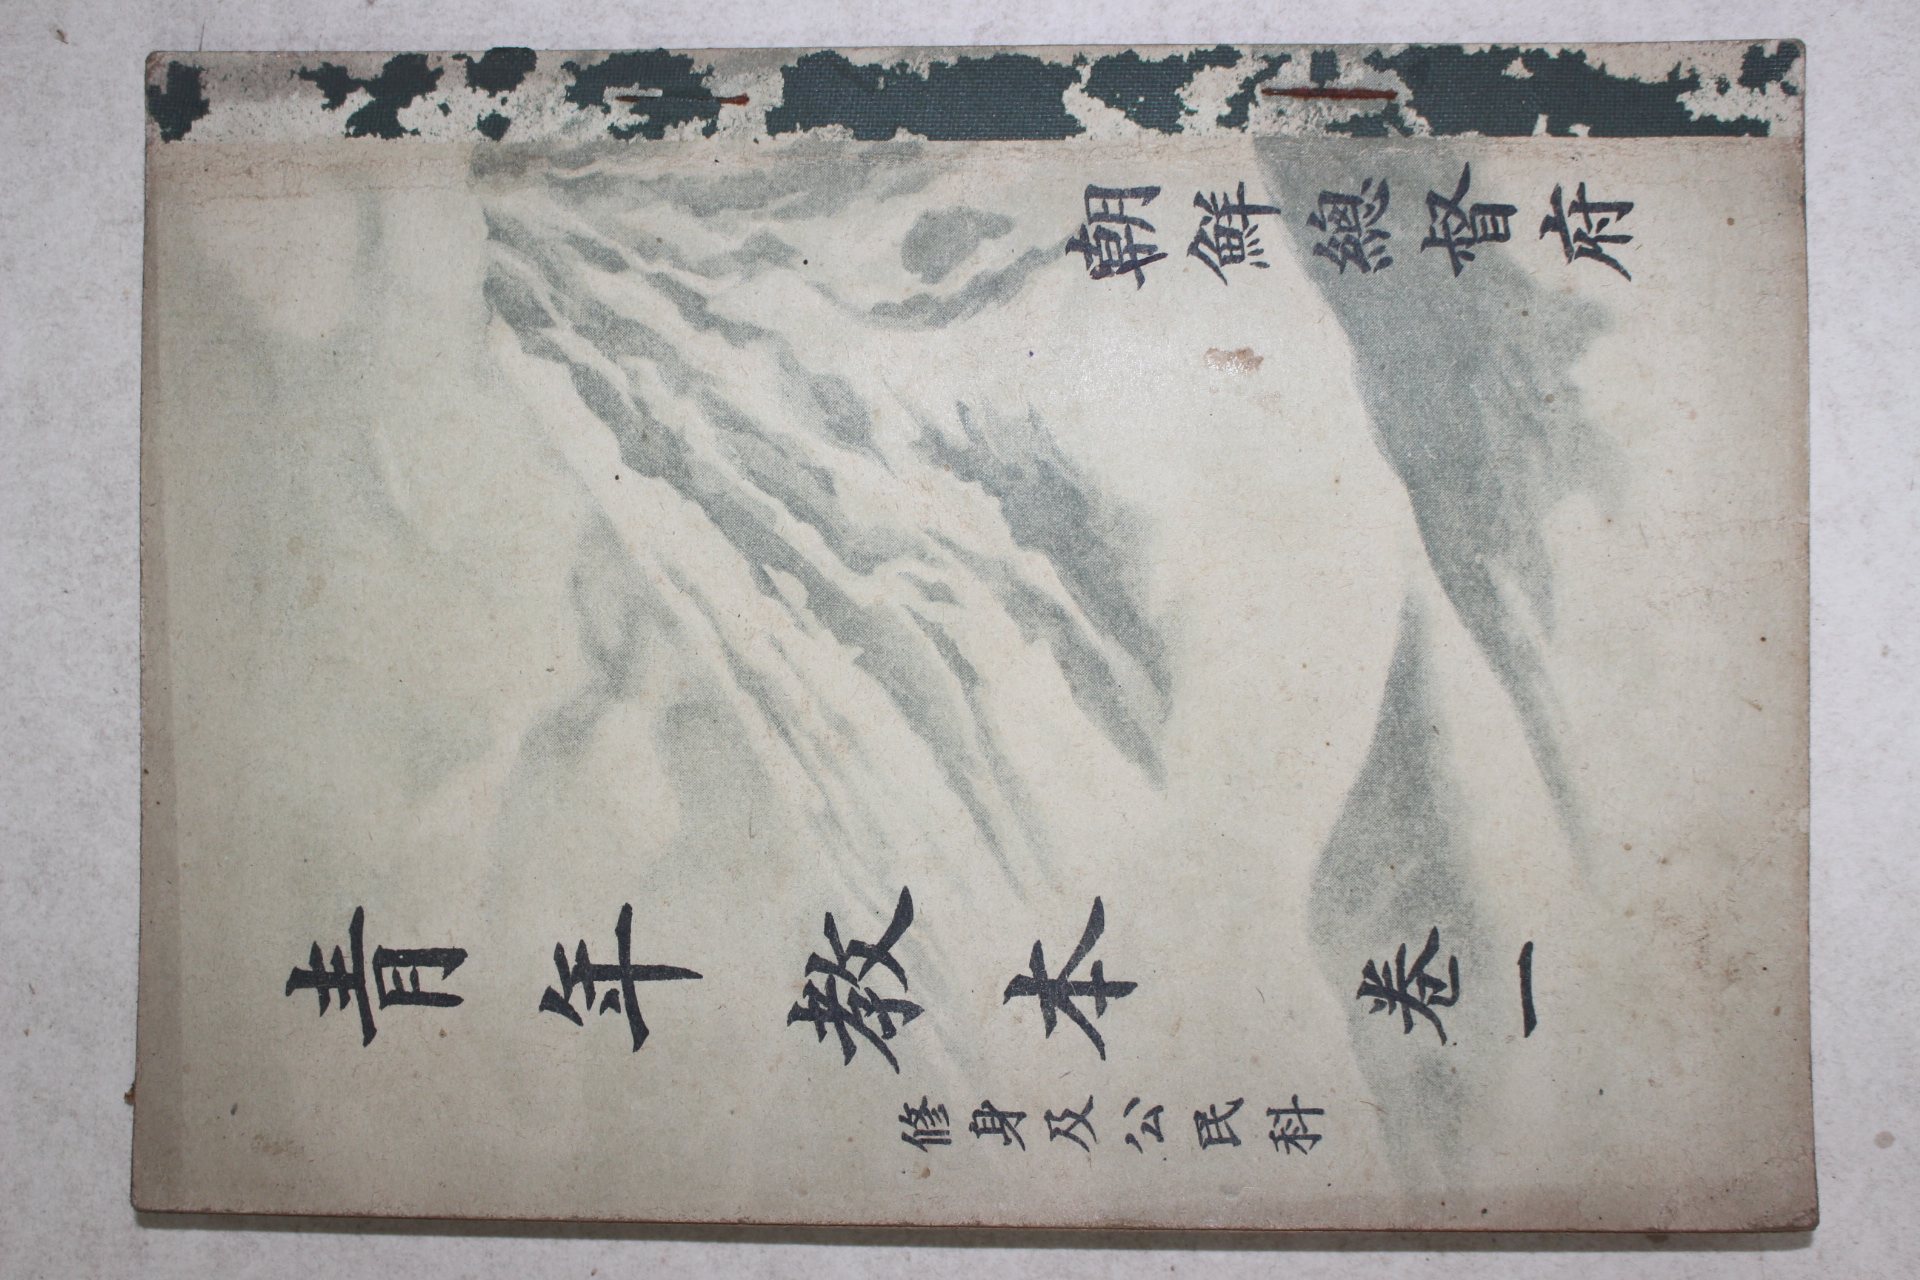 修身及公民科
青年教本 卷一
朝鮮總督府